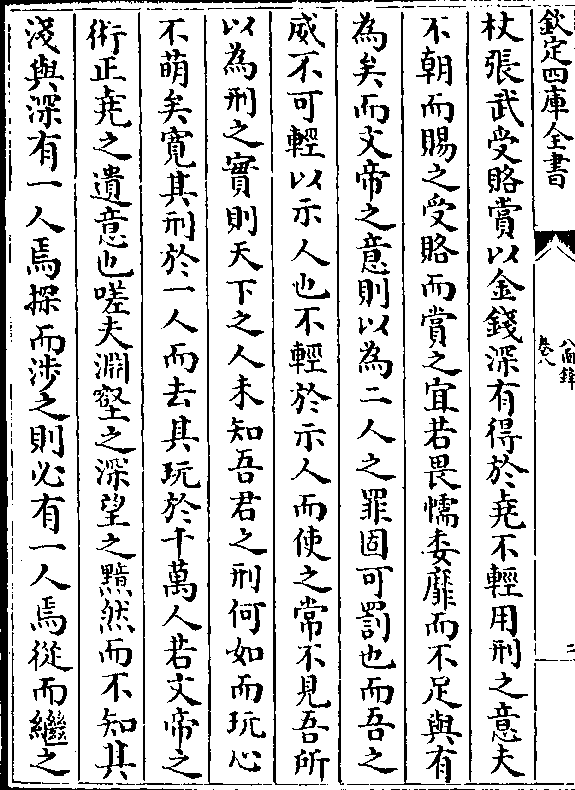 欽定四庫全書
八面鋒
卷八
二
杖張武受賂賞以金錢深有得於堯不輕用刑之意夫
不朝而賜之受賂而賞之宜若畏懦委靡而不足與有
為矣而文帝之意則以為二人之罪固可罰也而吾之
威不可輕以示人也不輕於示人而使之常不見吾所
以為刑之實則天下之人未知吾君之刑何如而玩心
不萌矣寛其刑於一人而去其玩於千萬人若文帝之
術正堯之遺意也嗟夫淵壑之深望之黯然而不知其
淺與深有一人焉探而涉之則必有一人焉從而繼之